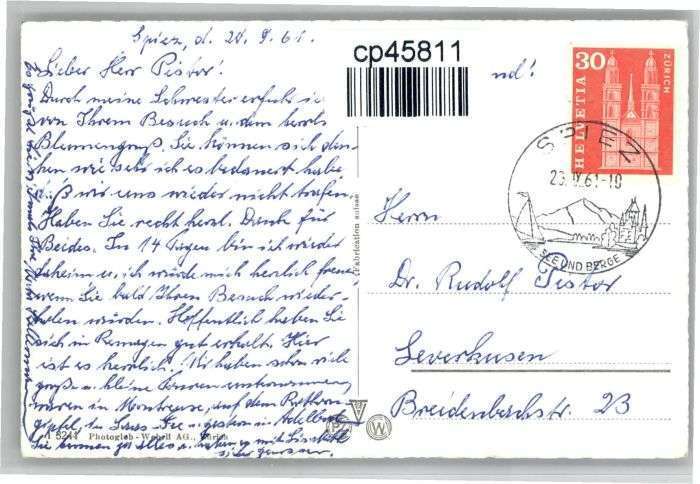 Spiez, d. 28.9.61.
Lieber Herr Pistor!
Durch meine Schwester erfuhr ich
von Ihrem Besuch u. dem herrl.
Blumengruß. Sie können sich den-
ken wie sehr ich es bedauert habe,
daß wir uns wieder nicht trafen.
Haben Sie recht herzl. Dank für
Beides. In 14 Tagen bin ich wieder
daheim u. ich würde mich herzlich freuen,
wenn Sie bald Ihren Besuch wieder-
holen würden. Hoffentlich haben Sie
sich in Remagen gut erholt. Hier
ist es herrlich! Wir haben schon viele
große u. kleine Touren
waren in Montreux, auf dem Rothorn-
gipfel, in Saas-Fee u. gestern in Adelboden
Sie kennen ja alles u.
cp45811
nd!
30
HELVETIA
ZÜRICH
SPIEZ
29.IX.61-10
SEE UND BERGE
Herrn
Dr. Rudolf Pistor
Leverkusen
Breidenbachstr. 23
(Fabrication suisse)
5244 Photoglob-Wehrli AG., Zürich
W